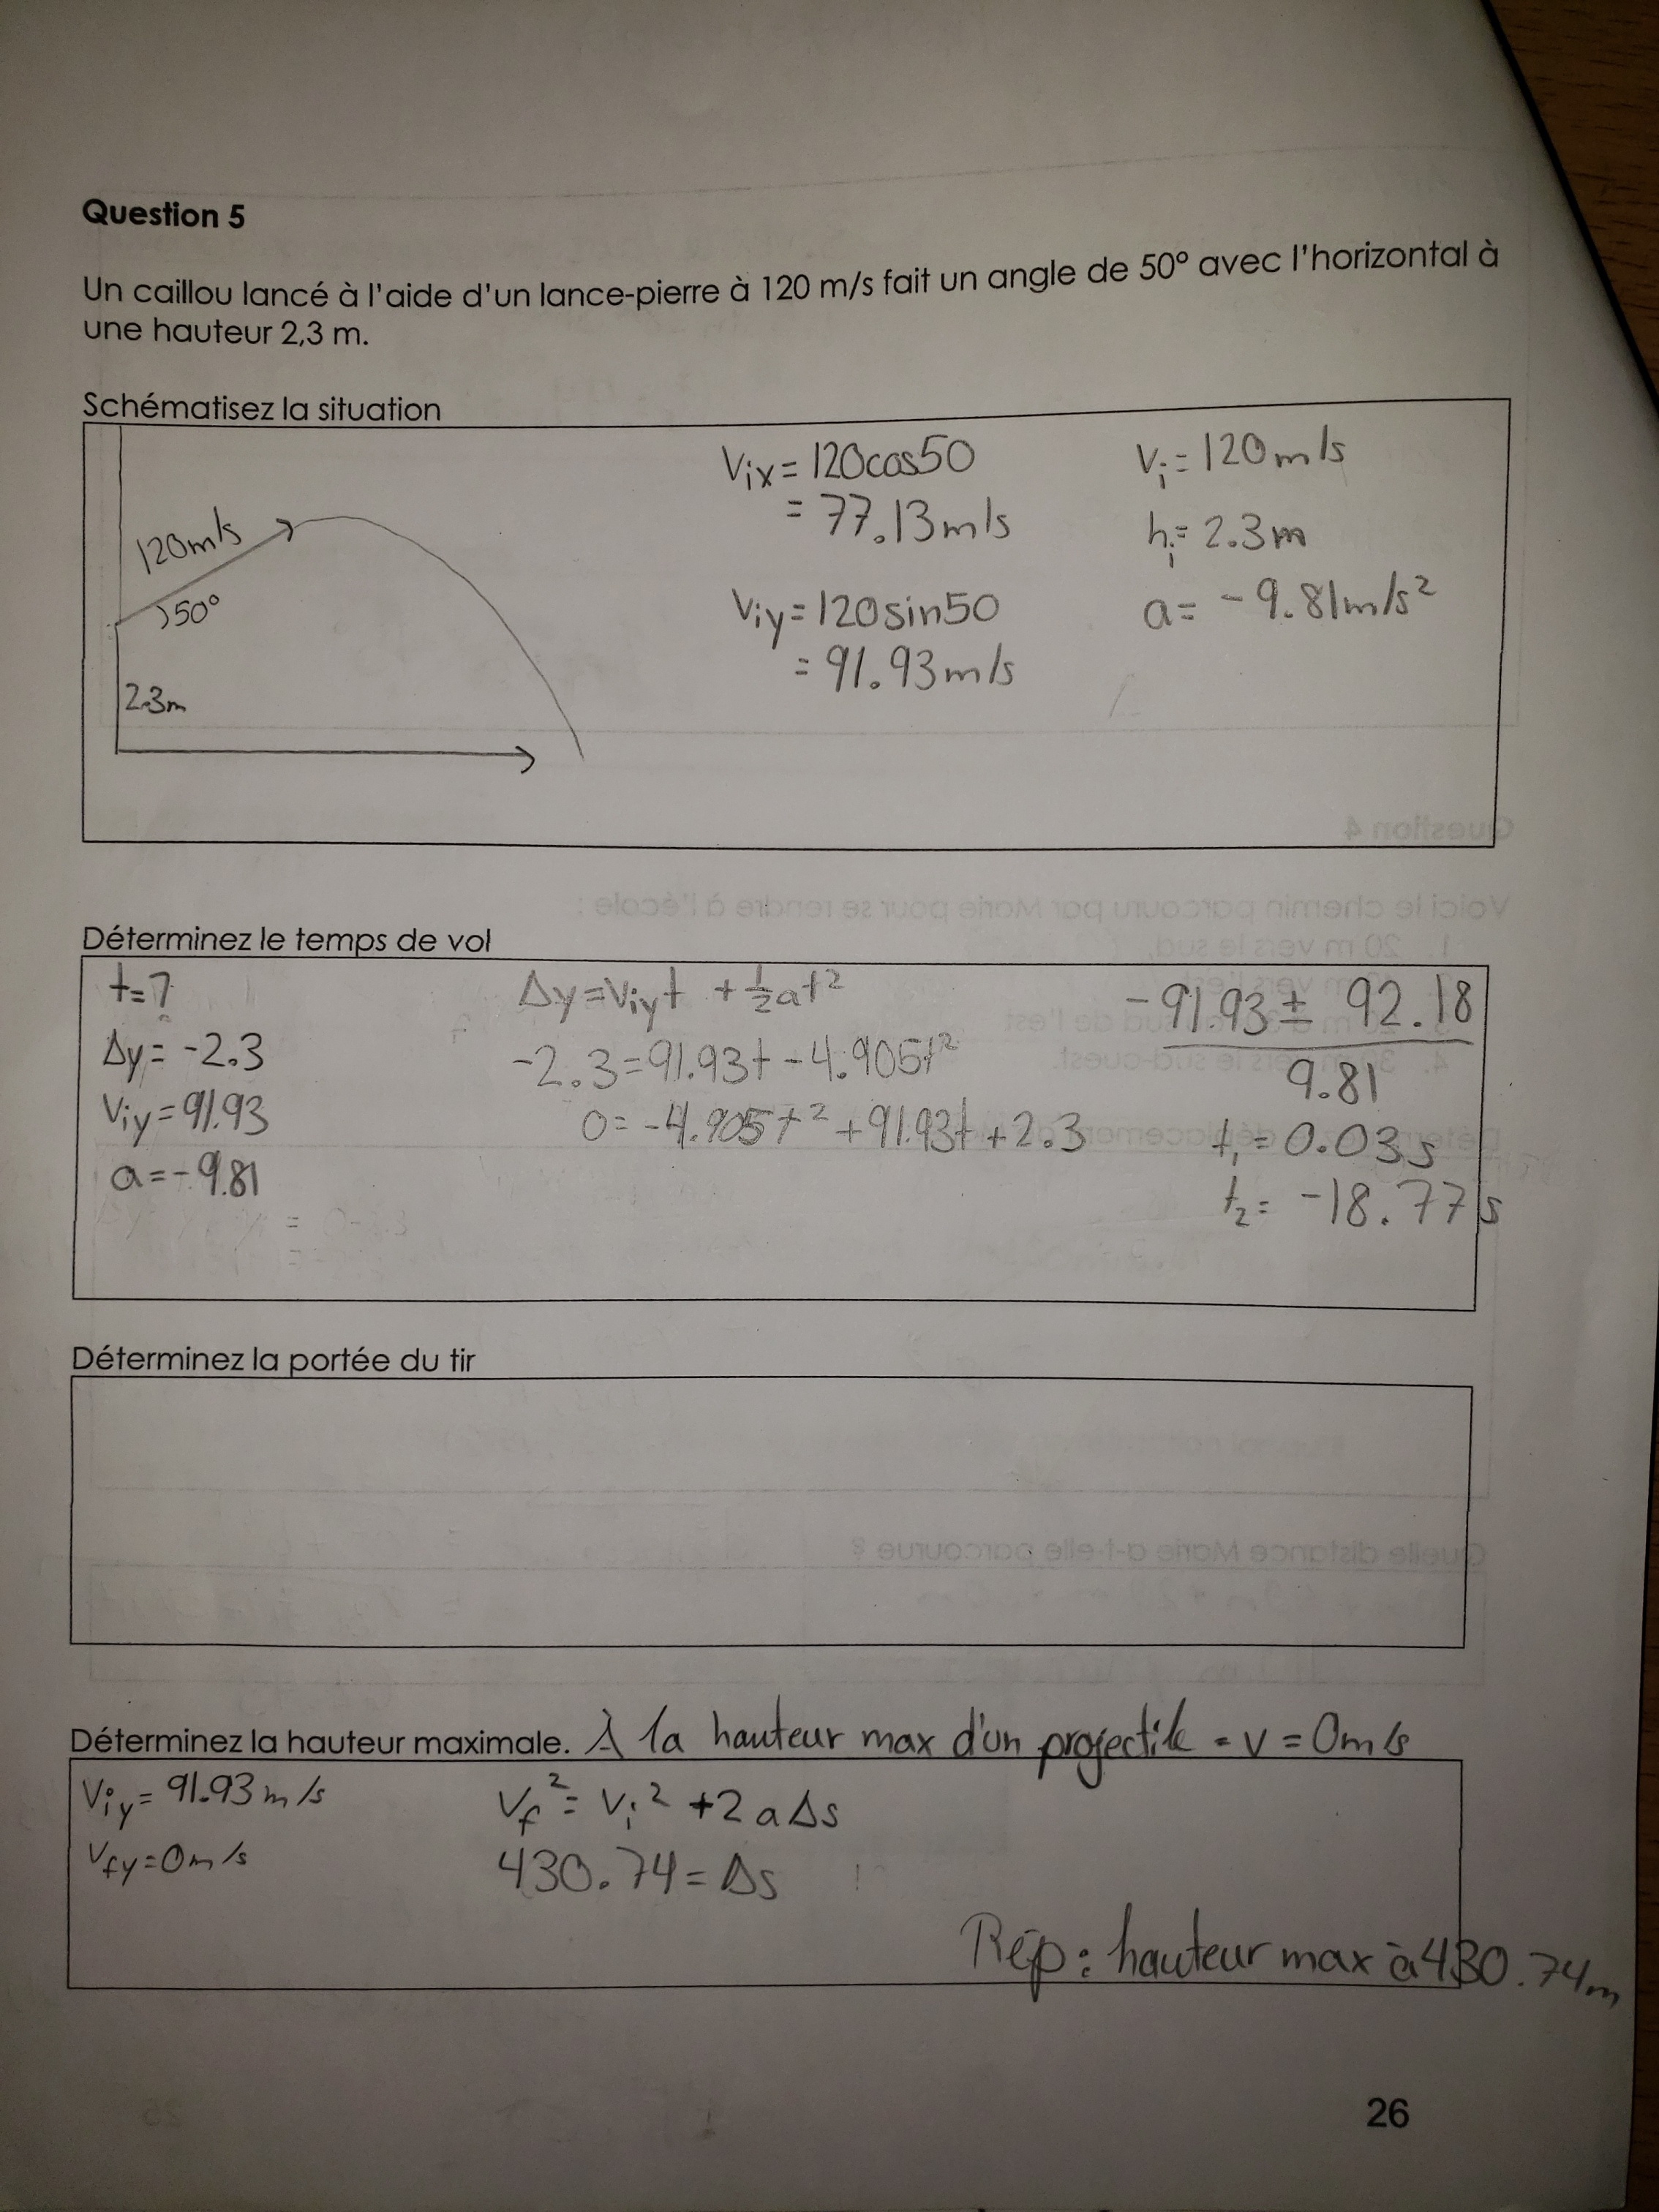 Question 5
Un caillou lancé à l'aide d'un lance-pierre à 120 m/s fait un angle de 50° avec l'horizontal à
une hauteur 2,3 m.
Schématisez la situation
120m/s
50°
2.3m
Vix = 120cos50
= 77.13m/s
Viy = 120sin50
= 91.93m/s
Vi = 120m/s
hi = 2.3m
a = -9.81m/s²
Déterminez le temps de vol
t=?
Δy = -2.3
Viy = 91.93
a = -9.81
Δy = Viyt + ½at²
-2.3 = 91.93t - 4.905t²
0 = -4.905t² + 91.93t + 2.3
-91.93 ± 92.18
9.81
t₁ = 0.03s
t₂ = -18.77s
Déterminez la portée du tir
Déterminez la hauteur maximale. À la hauteur max d'un projectile - v = 0m/s
Viy = 91.93 m/s
Vfy = 0m/s
Vf² = Vi² + 2aΔs
430.74 = Δs
Rép : hauteur max à 430.74m
26